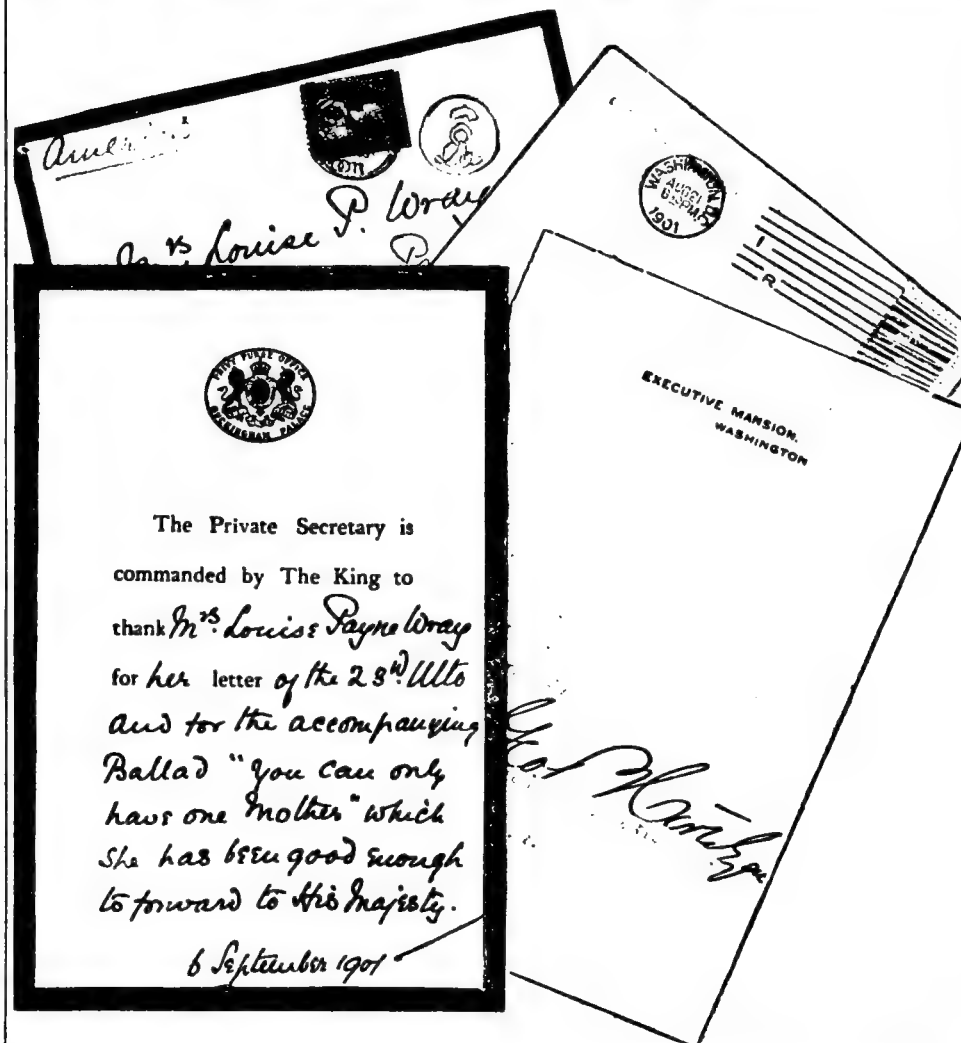 America
Mrs Louise P. Wray
WASHINGTON, D.C.
AUG 21
1901
EXECUTIVE MANSION,
WASHINGTON
PRIVY PURSE OFFICE
BUCKINGHAM PALACE
The Private Secretary is
commanded by The King to
thank Mrs. Louise Payne Wray
for her letter of the 23rd. Ulto
and for the accompanying
Ballad "You can only
have one Mother" which
she has been good enough
to forward to His Majesty.
6 September 1901